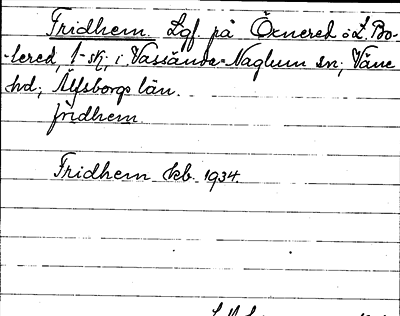 Fridhem. Lgf. på Öxnered o L. Bo-
-lered, 1-sk, i Vassända-Naglum sn; Väne
hd; Älfsborgs län.
fridhem
Fridhem kb. 1934.